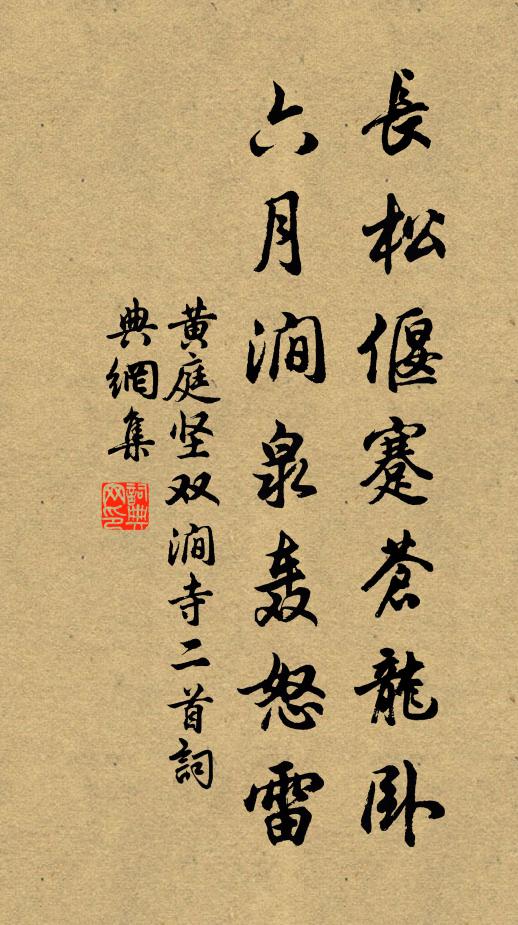 長松偃蹇蒼龍卧
六月澗泉轰怒雷
黄庭坚双澗寺二首詞
典網集
詞典网印